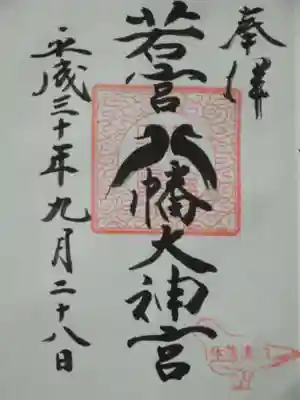 奉拝
若宮八幡大神宮
平成三十年九月二十八日